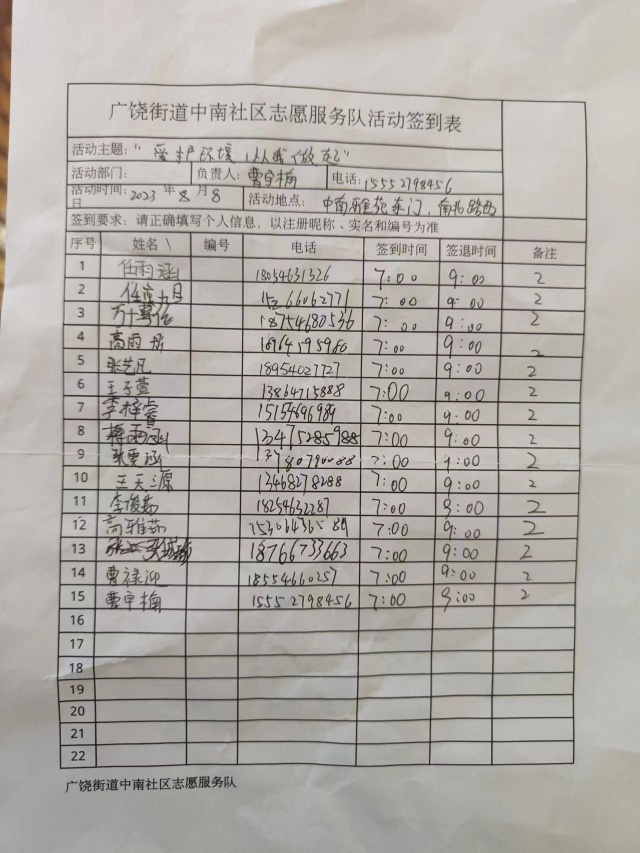 广饶街道中南社区志愿服务队活动签到表
活动主题："爱护环境 从我做起"
活动部门: 负责人: 曹宇楠 电话: 15552798456
活动时间: 2023 年 8 月 8 日 活动地点: 中南雅苑东门，南北路西
签到要求：请正确填写个人信息，以注册昵称、实名和编号为准
序号 姓名 编号 电话 签到时间 签退时间 备注
1 任雨涵 18054631326 7:00 9:00 2
2 7:00 9:00 2
3 18754680536 7:00 9:00 2
4 高雨 7:00 9:00 2
5 张艺凡 18954027727 7:00 9:00 2
6 王子萱 13864715888 7:00 9:00 2
7 李梓睿 15154696989 7:00 9:00 2
8 雨涵 13475285988 7:00 9:00 2
9 涵 7:00 9:00 2
10 王天源 13468278288 7:00 9:00 2
11 李俊茹 18254632287 7:00 9:00 2
12 高雅茹 7:00 9:00 2
13 18766733663 7:00 9:00 2
14 曹禄迎 18554660257 7:00 9:00 2
15 曹宇楠 15552798456 7:00 9:00 2
16
17
18
19
20
21
22
广饶街道中南社区志愿服务队